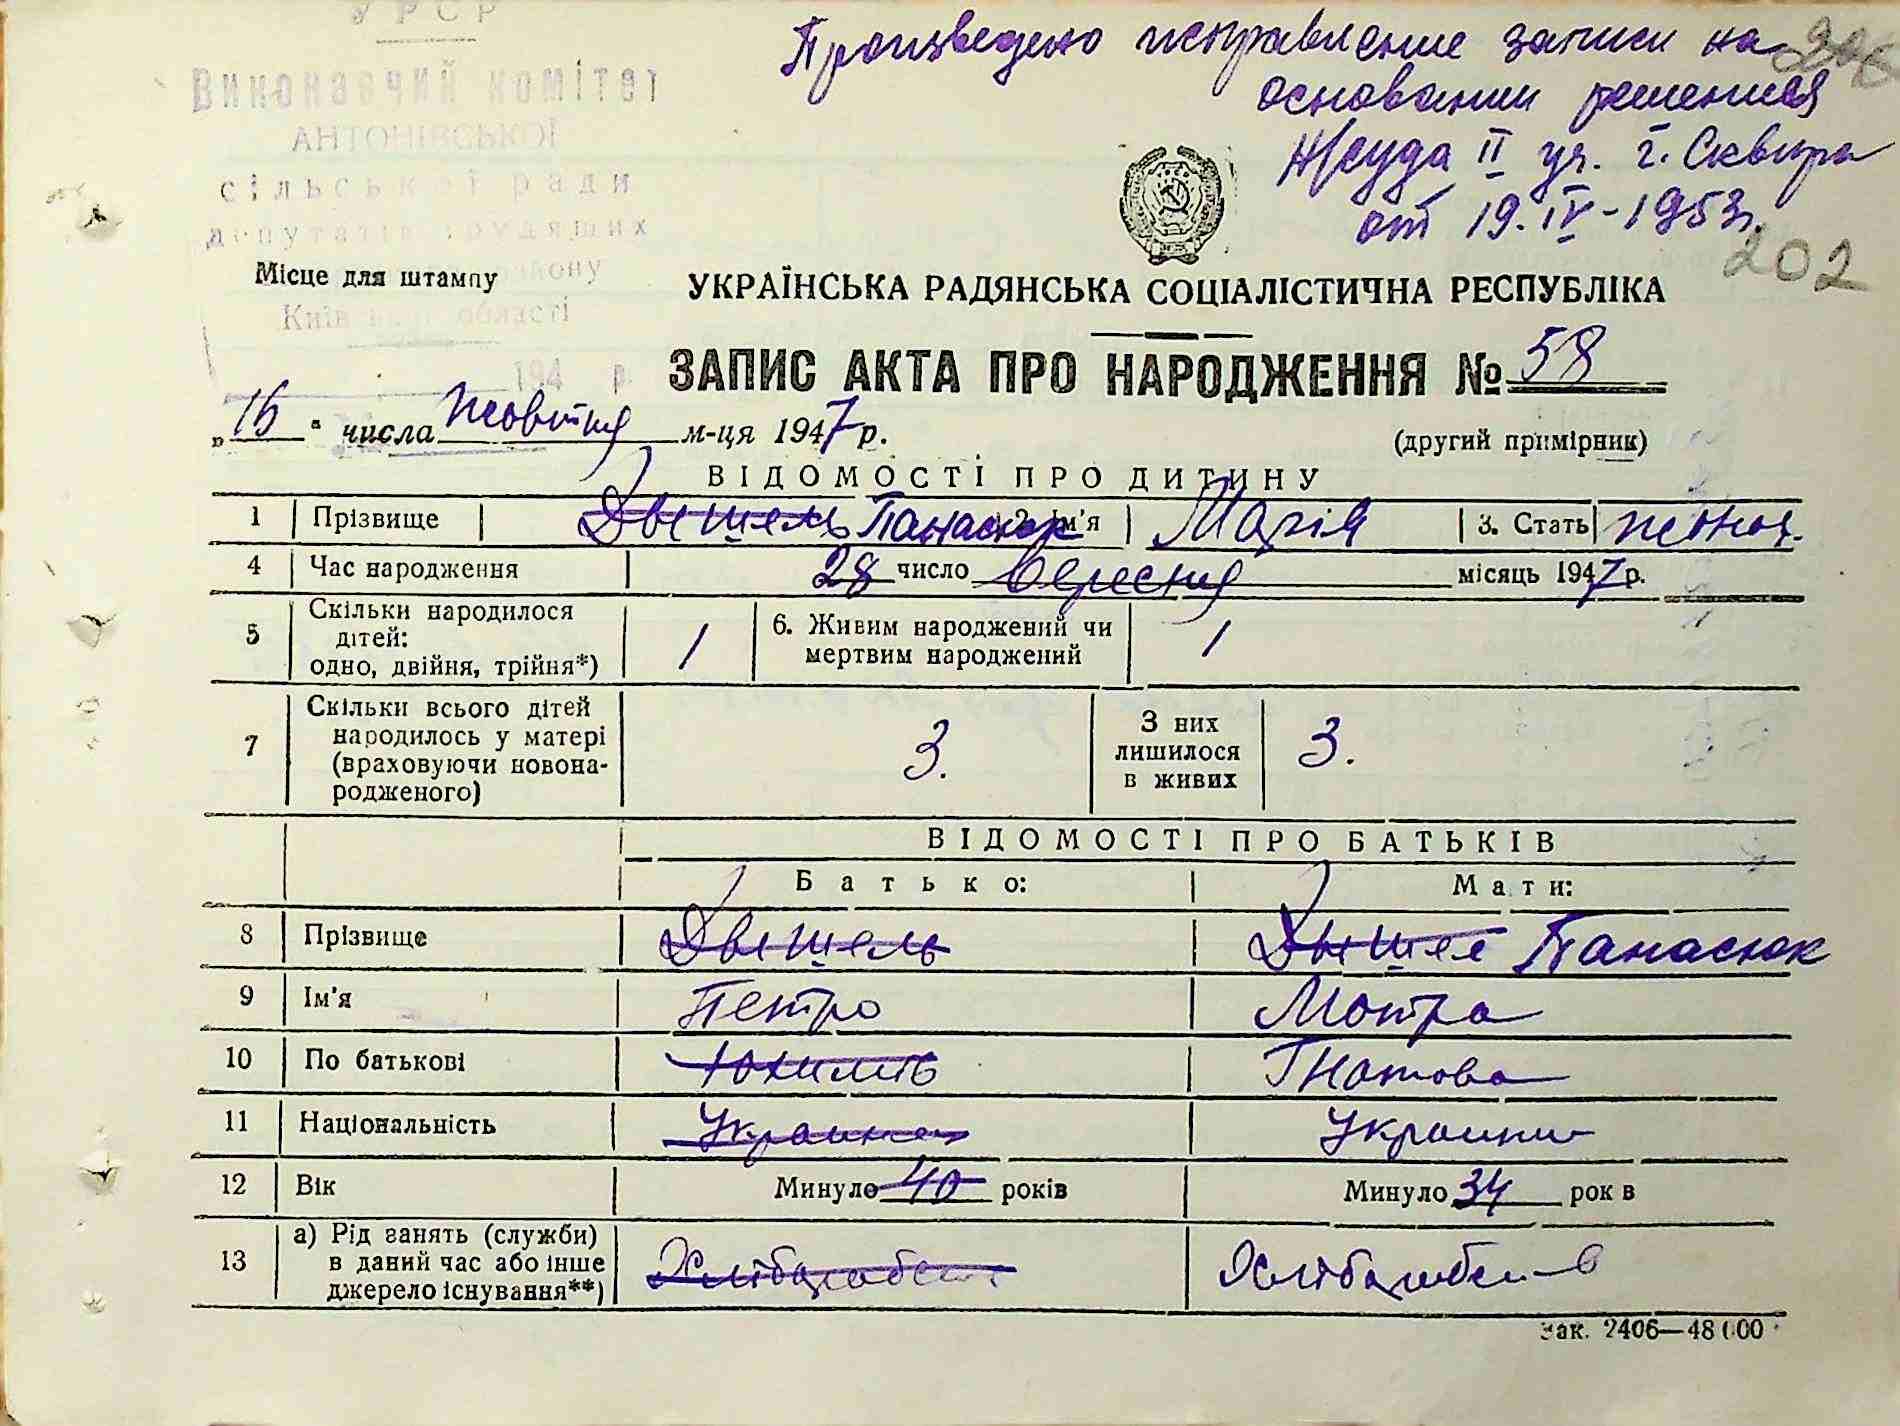 УРСР
Виконавчий комітет
АНТОНІВСЬКОЇ
сільської ради
депутатів трудящих
району
Київської області
194 р.
Произведено исправление записи на
основании решения
н/суда II уч. г. Сквира
от 19.IV-1953г.
202
Місце для штампу
УКРАЇНСЬКА РАДЯНСЬКА СОЦІАЛІСТИЧНА РЕСПУБЛІКА
ЗАПИС АКТА ПРО НАРОДЖЕННЯ № 58
„15“ числа жовтня м-ця 1947 р.
(другий примірник)
ВІДОМОСТІ ПРО ДИТИНУ
1 Прізвище Панасюк 2. Ім'я Марія 3. Стать жіноч.
4 Час народження 28 число вересня місяць 1947 р.
5 Скільки народилося дітей: одно, двійня, трійня*) 1 6. Живим народжений чи мертвим народжений 1
7 Скільки всього дітей народилось у матері (враховуючи новонародженого) 3. З них лишилося в живих 3.
ВІДОМОСТІ ПРО БАТЬКІВ
Батько: Мати:
8 Прізвище Панасюк
9 Ім'я Петро Мотря
10 По батькові Юхимів Гнатова
11 Національність Украинец Украинк
12 Вік Минуло 40 років Минуло 34 рок в
13 а) Рід занять (служби) в даний час або інше джерело існування**)
Зак. 2406—48000